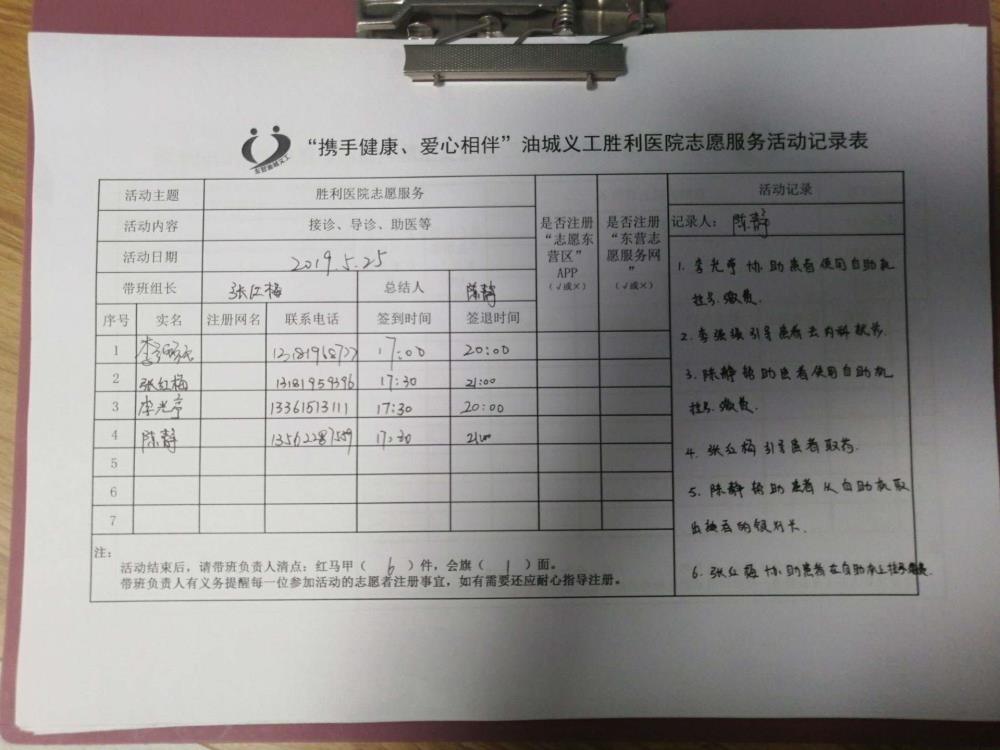 东营油城义工
“携手健康、爱心相伴”油城义工胜利医院志愿服务活动记录表
活动主题 胜利医院志愿服务
活动内容 接诊、导诊、助医等
活动日期 2019.5.25
带班组长 张红梅 总结人 陈静
是否注册“志愿东营区”APP（√或×）
是否注册“东营志愿服务网”（√或×）
序号 实名 注册网名 联系电话 签到时间 签退时间
1 李 17:00 20:00
2 张红梅 13181959396 17:30 21:00
3 李光亭 13361513111 17:30 20:00
4 陈静 13562287559 17:30 21:00
5
6
7
注：
活动结束后，请带班负责人清点：红马甲（ 6 ）件，会旗（ 1 ）面。
带班负责人有义务提醒每一位参加活动的志愿者注册事宜，如有需要还应耐心指导注册。
活动记录
记录人：陈静
1. 李光亭协助患者使用自助机
挂号.缴费.
2. 李强强引导患者去内科就诊.
3. 陈静帮助患者使用自助机
挂号.缴费.
4. 张红梅引导患者取药.
5. 陈静帮助患者从自助机取
出换看的银行卡.
6. 张红梅协助患者在自助机上挂号缴费.